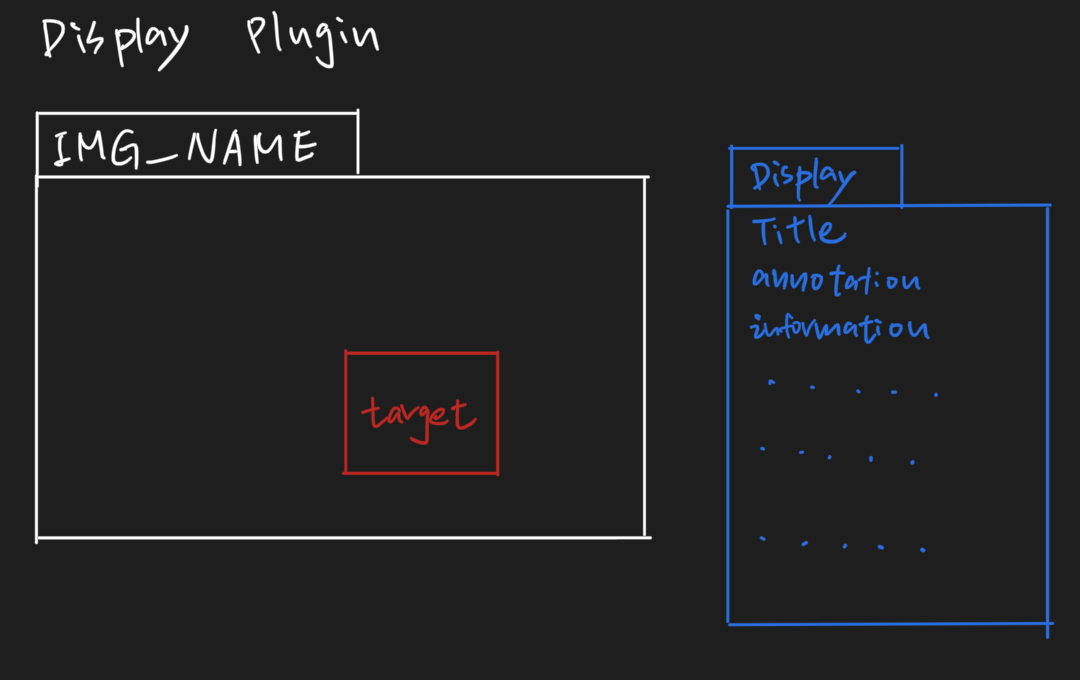 Display Plugin
IMG_NAME
target
Display
Title
annotation
information
. . . . .
. . . . .
. . . . .